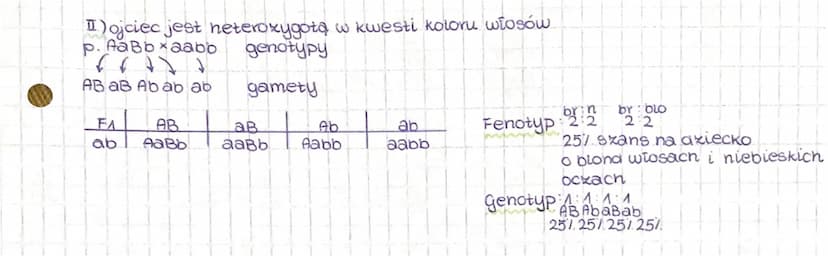 II) ojciec jest heteroxygotą w kwesti koloru włosów
p. AaBb × aabb genotypy
AB aB Ab ab ab gamety
F1 AB aB Ab ab
ab AaBb aaBb Aabb aabb
br : n br : blo
Fenotyp : 2 : 2 2 : 2
25% szans na dziecko
o blond włosach i niebieskich
oczach
Genotyp : 1 : 1 : 1 : 1
AB Ab aB ab
25% 25% 25% 25%